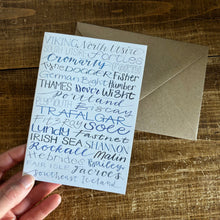 VIKING North Utsire
South Utsire Forties
Cromarty Forth
Tyne DOGGER Fisher
German Bight Humber
THAMES Dover WIGHT
Portland
PLYMOUTH Biscay
TRAFALGAR
FitzRoy Sole
Lundy Fastnet
IRISH SEA SHANNON
Rockall Malin
Hebrides Bailey
FAIR ISLE Faeroes
Southeast Iceland